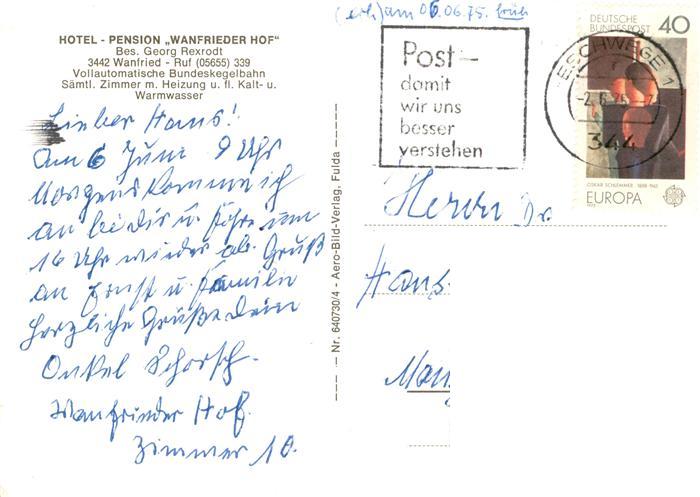 HOTEL - PENSION „WANFRIEDER HOF"
Bes. Georg Rexrodt
3442 Wanfried - Ruf (05655) 339
Vollautomatische Bundeskegelbahn
Sämtl. Zimmer m. Heizung u. fl. Kalt- u.
Warmwasser
Lieber Hans!
Am 6 Juni 9 Uhr
Morgens komme ich
an bei dir u. fahre um
16 Uhr wieder ab. Gruß
an Ernst u. Familie
Herzliche Grüße dein
Onkel Schorsch.
Wanfrieder Hof.
Zimmer 10.
Nr. 640730/4 - Aero-Bild-Verlag, Fulda
(erh) am 06.06.75. früh
Post-
damit
wir uns
besser
verstehen
ESCHWEGE 1
-2.6.75.-7
344
DEUTSCHE
BUNDESPOST
40
OSKAR SCHLEMMER 1888-1943
EUROPA
1975
Herrn Dr.
Hans